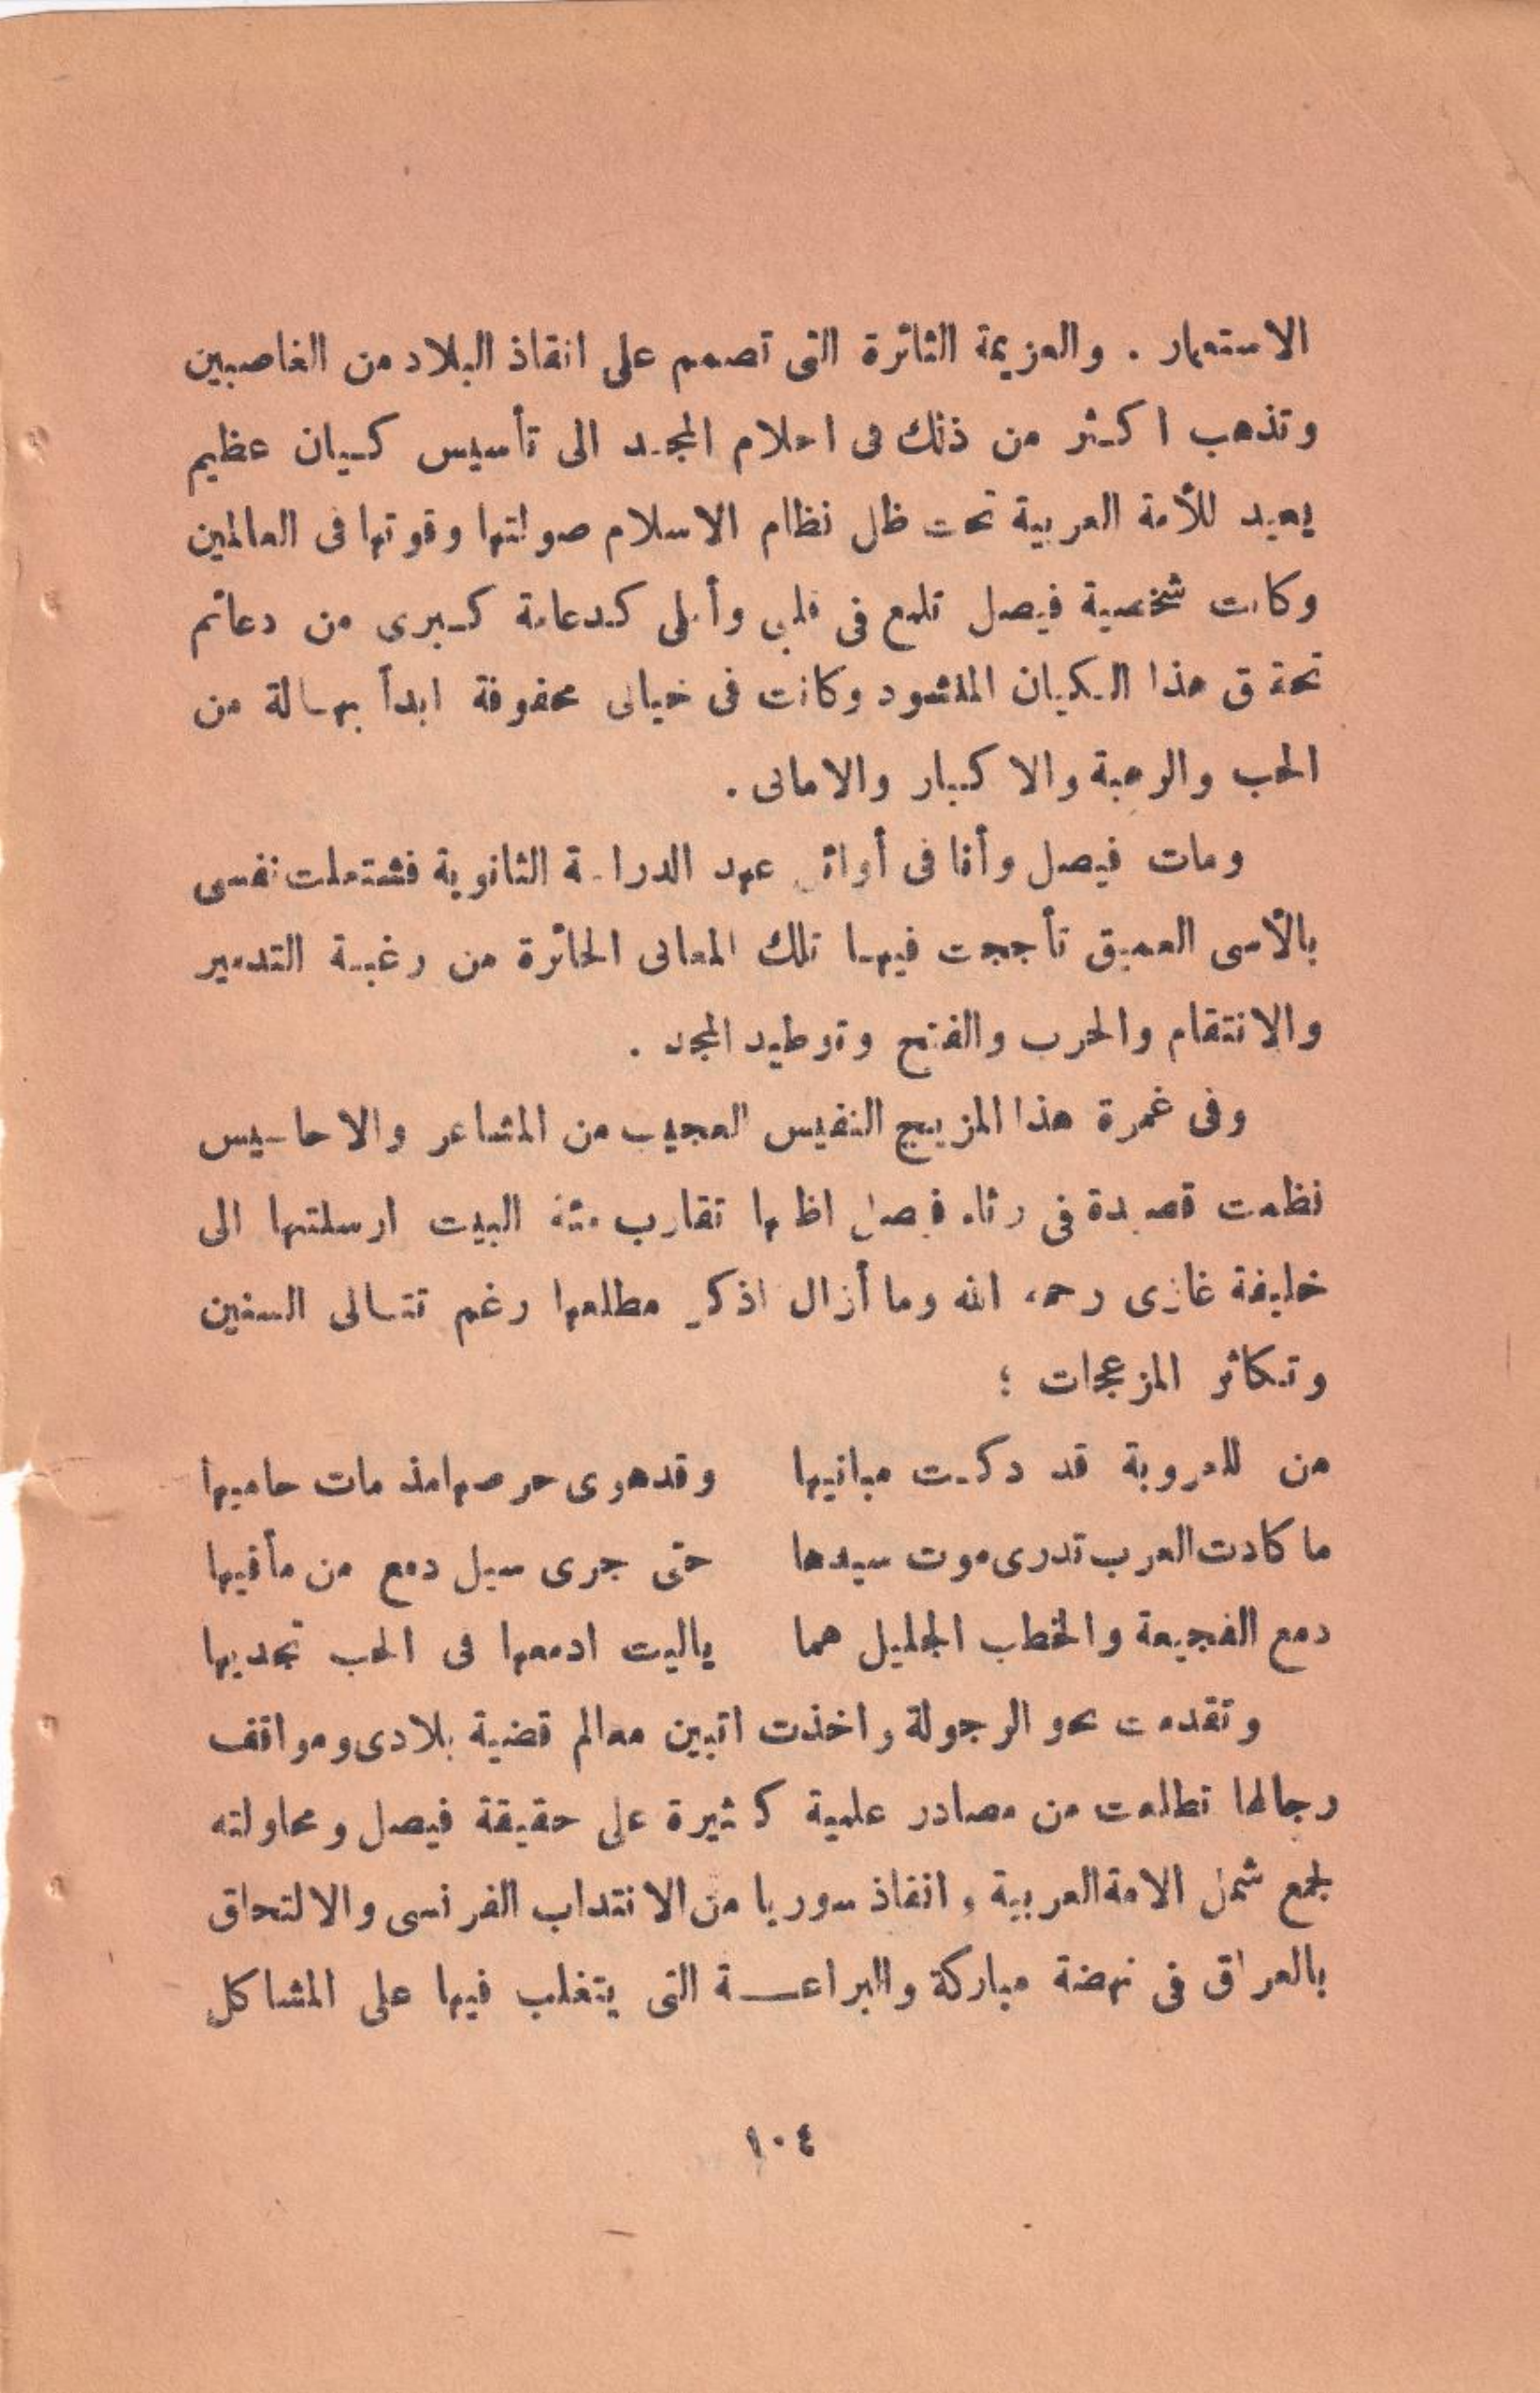 الاستعمار . والعزيمة الثائرة التى تصمم على انقاذ البلاد من الغاصبين
وتذهب اكثر من ذلك فى احلام المجد الى تأسيس كيان عظيم
يعيد للأمة العربية تحت ظل نظام الاسلام صولتها وقوتها فى العالمين
وكانت شخصية فيصل تلمع فى قلبى وأملى كدعامة كبرى من دعائم
تحقق هذا الكيان المنشود وكانت فى خيالى محفوفة ابداً بهالة من
الحب والرهبة والاكبار والامانى .
ومات فيصل وأنا فى أوائل عهد الدراسة الثانوية فشتعلت نفسى
بالأسى العميق تأججت فيها تلك المعانى الحائرة من رغبة التدمير
والانتقام والحرب والفتح وتوطيد المجد .
وفى غمرة هذا المزيج النفيس العجيب من المشاعر والاحاسيس
نظمت قصيدة فى رثاء فيصل اظنها تقارب مئة البيت ارسلتها الى
خليفة غازى رحمه الله وما أزال اذكر مطلعها رغم تتالى السنين
وتكاثر المزعجات ؛
من للعروبة قد دكت مبانيها وقد هوى حرصها مذ مات حاميها
ما كادت العرب تدرى موت سيدها حتى جرى سيل دمع من مأقيها
دمع الفجيعة والخطب الجليل هما ياليت ادمعها فى الحب تجديها
وتقدمت نحو الرجولة واخذت اتبين معالم قضية بلادى ومواقف
رجالها تطلعت من مصادر علمية كثيرة على حقيقة فيصل ومحاولته
لجمع شمل الامة العربية وانقاذ سوريا من الانتداب الفرنسى والالتحاق
بالعراق فى نهضة مباركة والبراعة التى يتغلب فيها على المشاكل
١٠٤